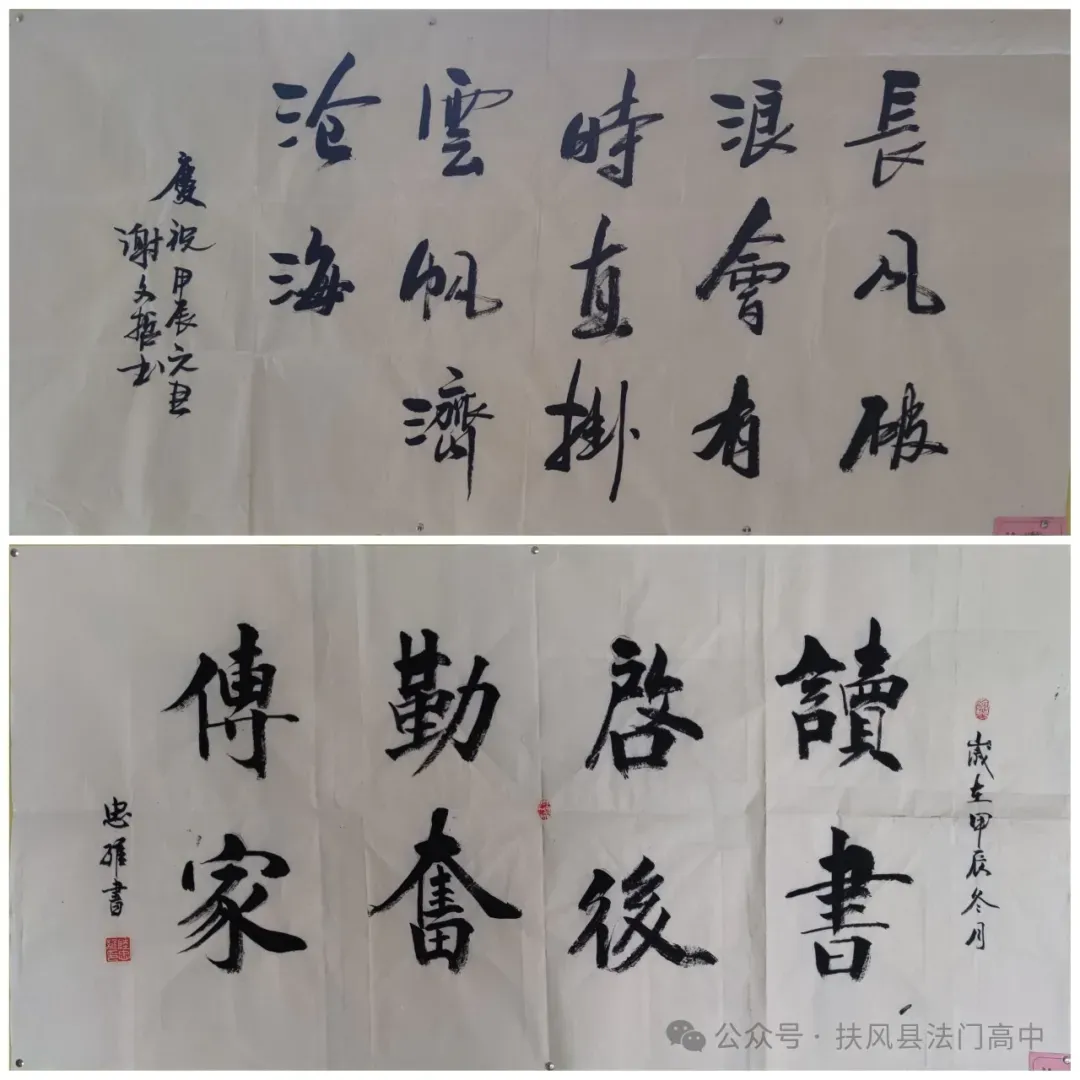 長風破
浪會有
時直掛
雲帆濟
滄海
慶祝甲辰元旦
谢文哲书
歲在甲辰冬月
讀書
啓後
勤奮
傳家
忠雅書
公众号·扶风县法门高中